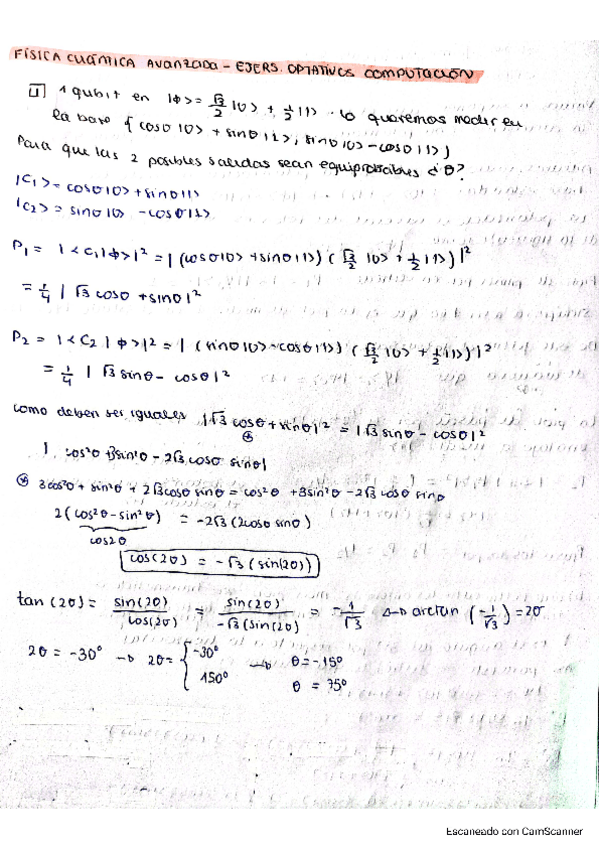 FÍSICA CUÁNTICA AVANZADA - EJERS. OPTATIVOS COMPUTACIÓN
1 1 qubit en |ϕ> = √3/2 |0> + 1/2 |1> . Lo queremos medir en
la base { cosθ |0> + sinθ |1> , sinθ |0> - cosθ |1> }
Para que las 2 posibles salidas sean equiprobables ¿θ?
|C₁> = cosθ|0> + sinθ|1>
|C₂> = sinθ|0> - cosθ|1>
P₁ = |<C₁|ϕ>|² = |(cosθ|0> + sinθ|1>) (√3/2 |0> + 1/2 |1>)|²
= 1/4 | √3 cosθ + sinθ |²
P₂ = |<C₂|ϕ>|² = | (sinθ|0> - cosθ|1>) (√3/2 |0> + 1/2 |1>)|²
= 1/4 | √3 sinθ - cosθ |²
como deben ser iguales |√3 cosθ + sinθ|² = |√3 sinθ - cosθ|²
⊛
| cos²θ + 3sin²θ - 2√3 cosθ sinθ|
⊛ 3cos²θ + sin²θ + 2√3 cosθ sinθ = cos²θ + 3sin²θ - 2√3 cosθ sinθ
2(cos²θ - sin²θ) = -2√3 (2cosθ sinθ)
cos2θ
cos(2θ) = -√3 (sin(2θ))
tan(2θ) = sin(2θ)/cos(2θ) = sin(2θ)/-√3(sin(2θ) = -1/√3 → arctan (-1/√3) = 2θ
2θ = -30° → 2θ = { -30° → θ = -15°
150° θ = 75°
Escaneado con CamScanner